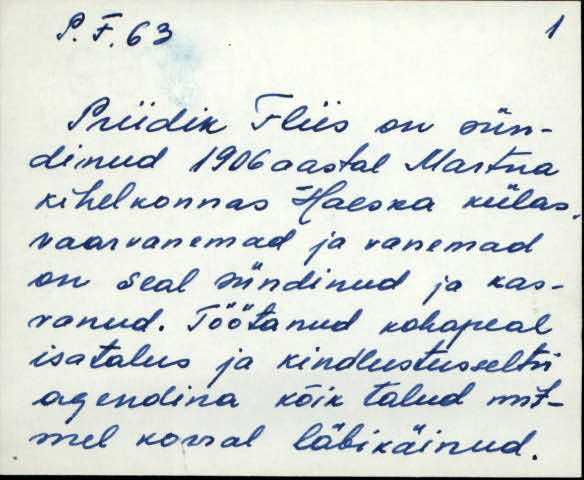 P.F.63
1
Priidik Fliis on sün-
dinud 1906 aastal Martna
kihelkonnas Haeska külas,
vaarvanemad ja vanemad
on seal sündinud ja kas-
vanud. Töötanud kohapeal
isatalus ja kindlustusseltsi
agendina kõik talud mit-
mel korral läbikäinud.